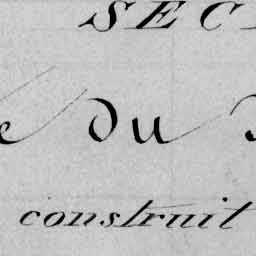 SEC
du
construit